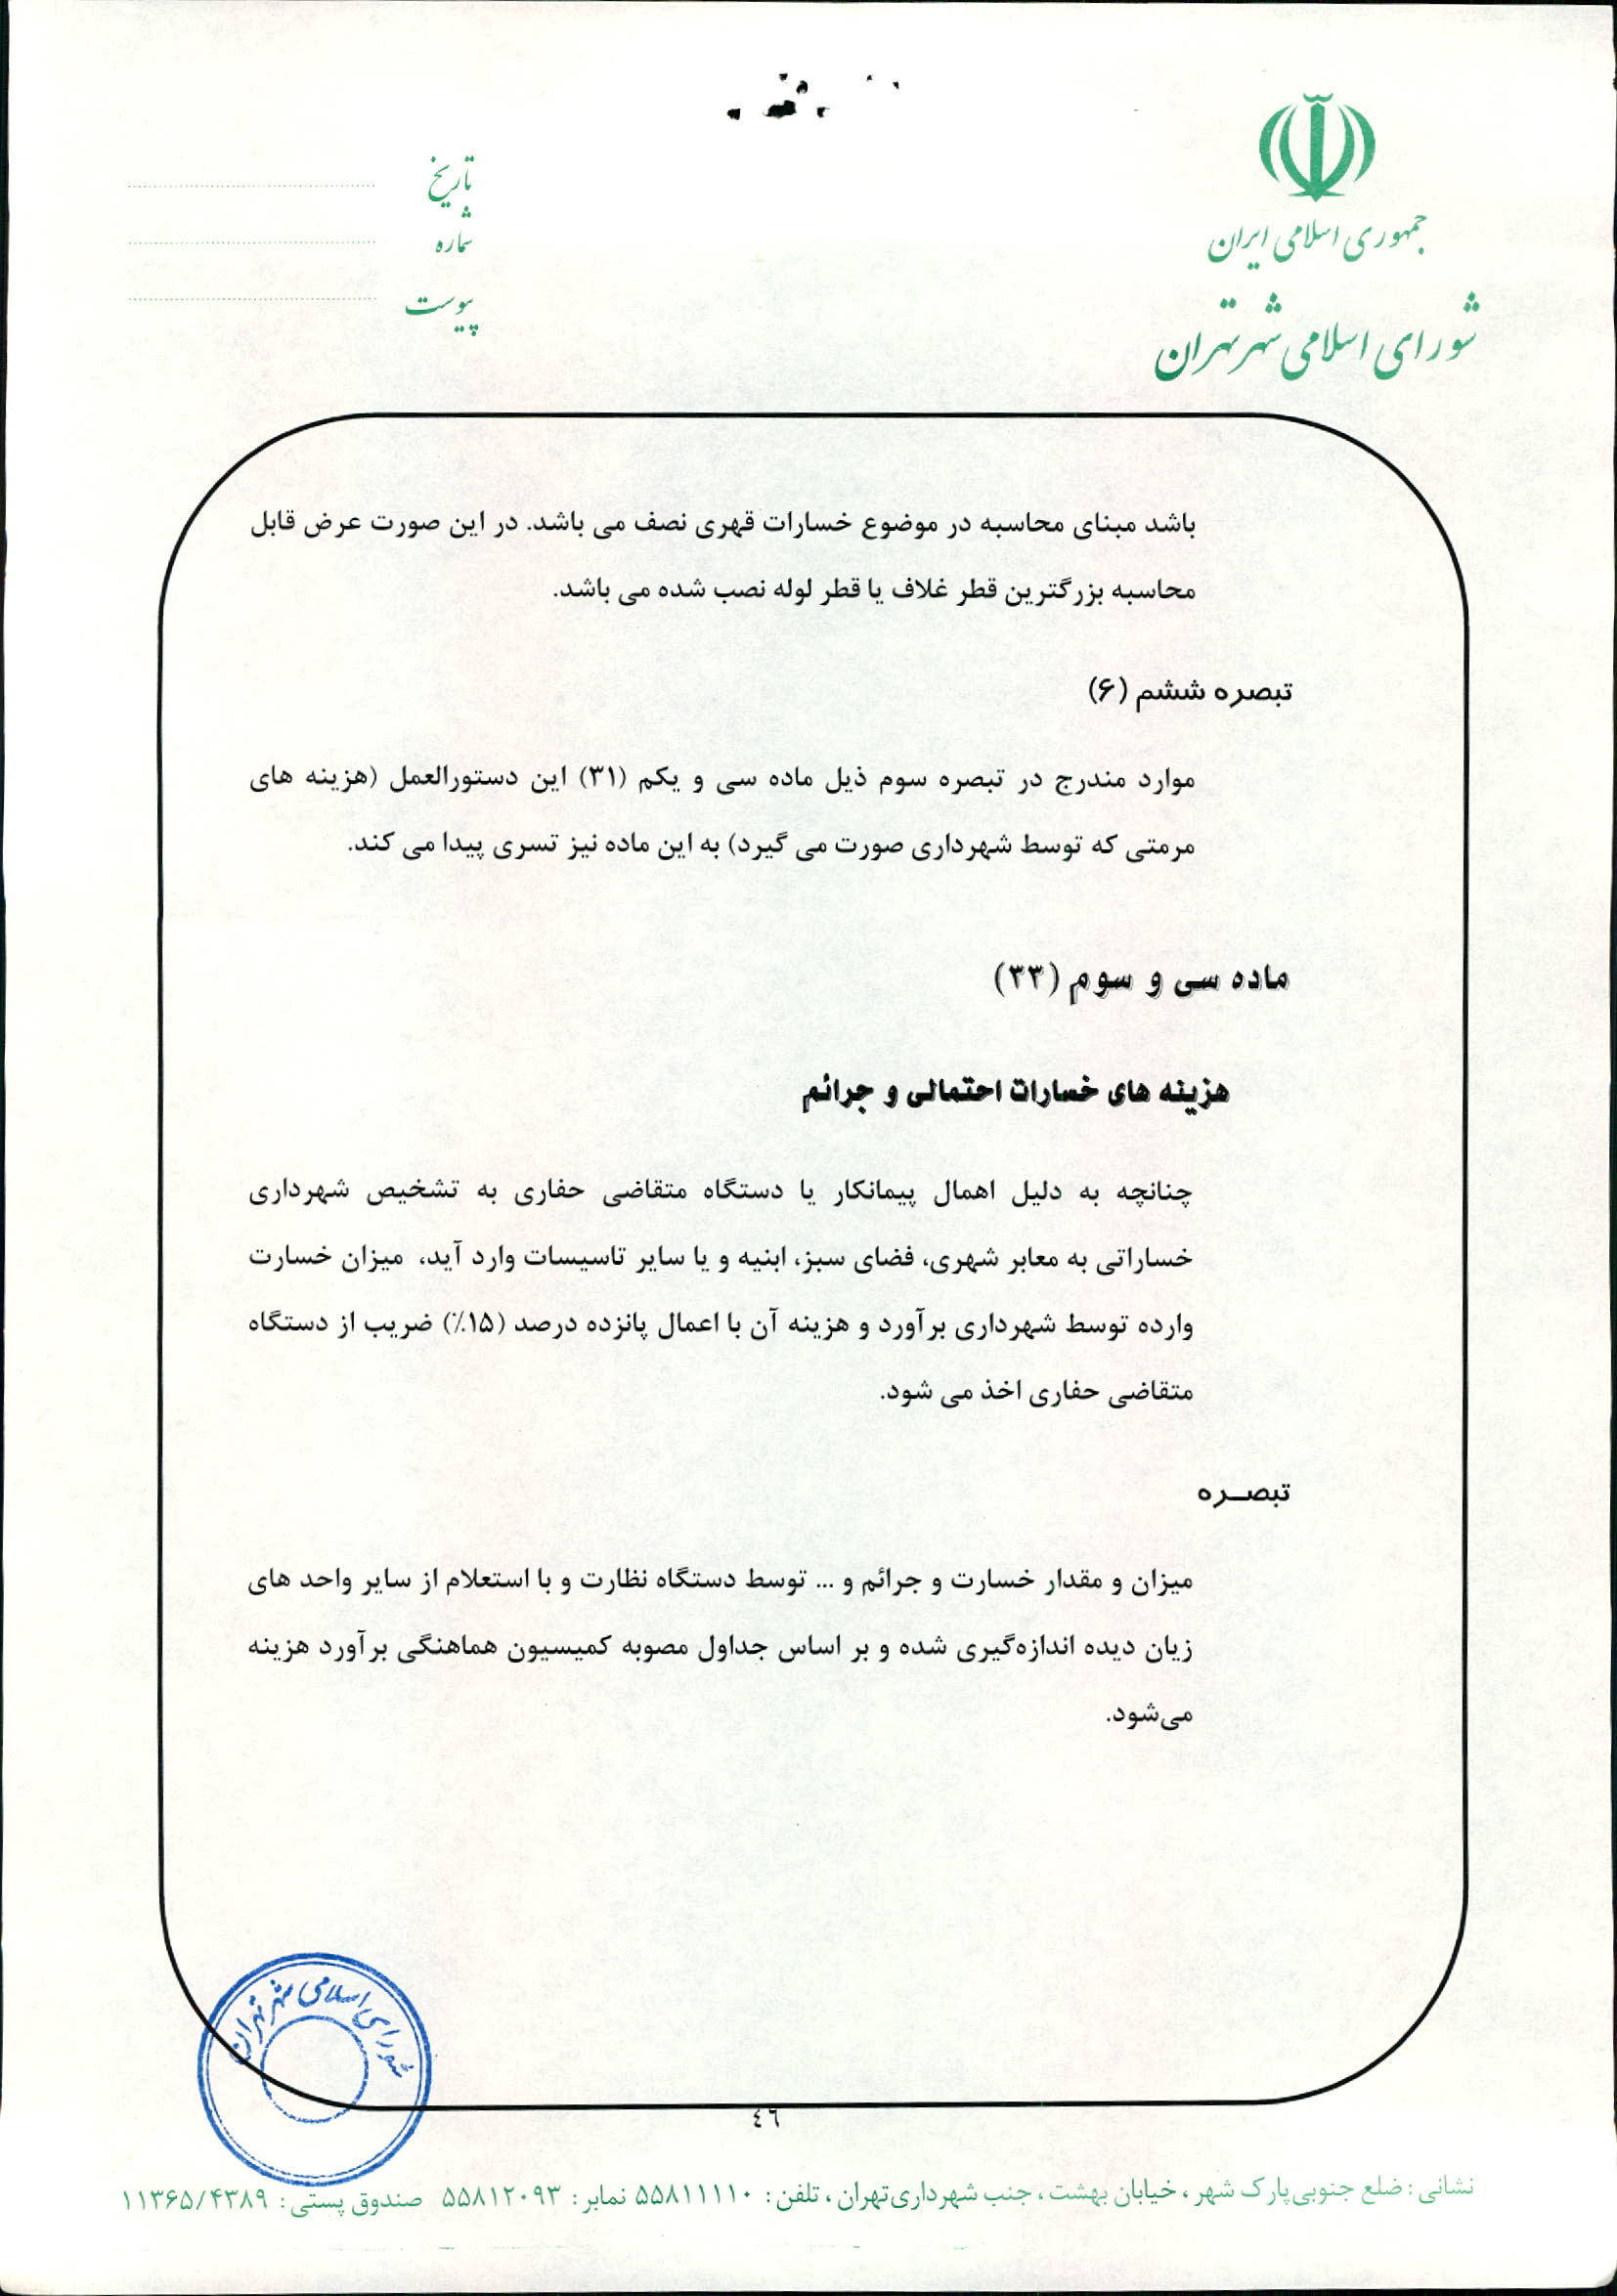 جمهوری اسلامی ایران
شورای اسلامی شهر تهران
تاریخ
شماره
پیوست
باشد مبنای محاسبه در موضوع خسارات قهری نصف می باشد. در این صورت عرض قابل
محاسبه بزرگترین قطر غلاف یا قطر لوله نصب شده می باشد.
تبصره ششم (۶)
موارد مندرج در تبصره سوم ذیل ماده سی و یکم (۳۱) این دستورالعمل (هزینه های
مرمتی که توسط شهرداری صورت می گیرد) به این ماده نیز تسری پیدا می کند.
ماده سی و سوم (۳۳)
هزینه های خسارات احتمالی و جرائم
چنانچه به دلیل اهمال پیمانکار یا دستگاه متقاضی حفاری به تشخیص شهرداری
خساراتی به معابر شهری، فضای سبز، ابنیه و یا سایر تاسیسات وارد آید، میزان خسارت
وارده توسط شهرداری برآورد و هزینه آن با اعمال پانزده درصد (۱۵٪) ضریب از دستگاه
متقاضی حفاری اخذ می شود.
تبصـره
میزان و مقدار خسارت و جرائم و ... توسط دستگاه نظارت و با استعلام از سایر واحد های
زیان دیده اندازه‌گیری شده و بر اساس جداول مصوبه کمیسیون هماهنگی برآورد هزینه
می‌شود.
شورای اسلامی شهر تهران
٤٦
نشانی : ضلع جنوبی پارک شهر ، خیابان بهشت ، جنب شهرداری تهران ، تلفن : ۵۵۸۱۱۱۱۰ نمابر : ۵۵۸۱۲۰۹۳ صندوق پستی : ۱۱۳۶۵/۴۳۸۹